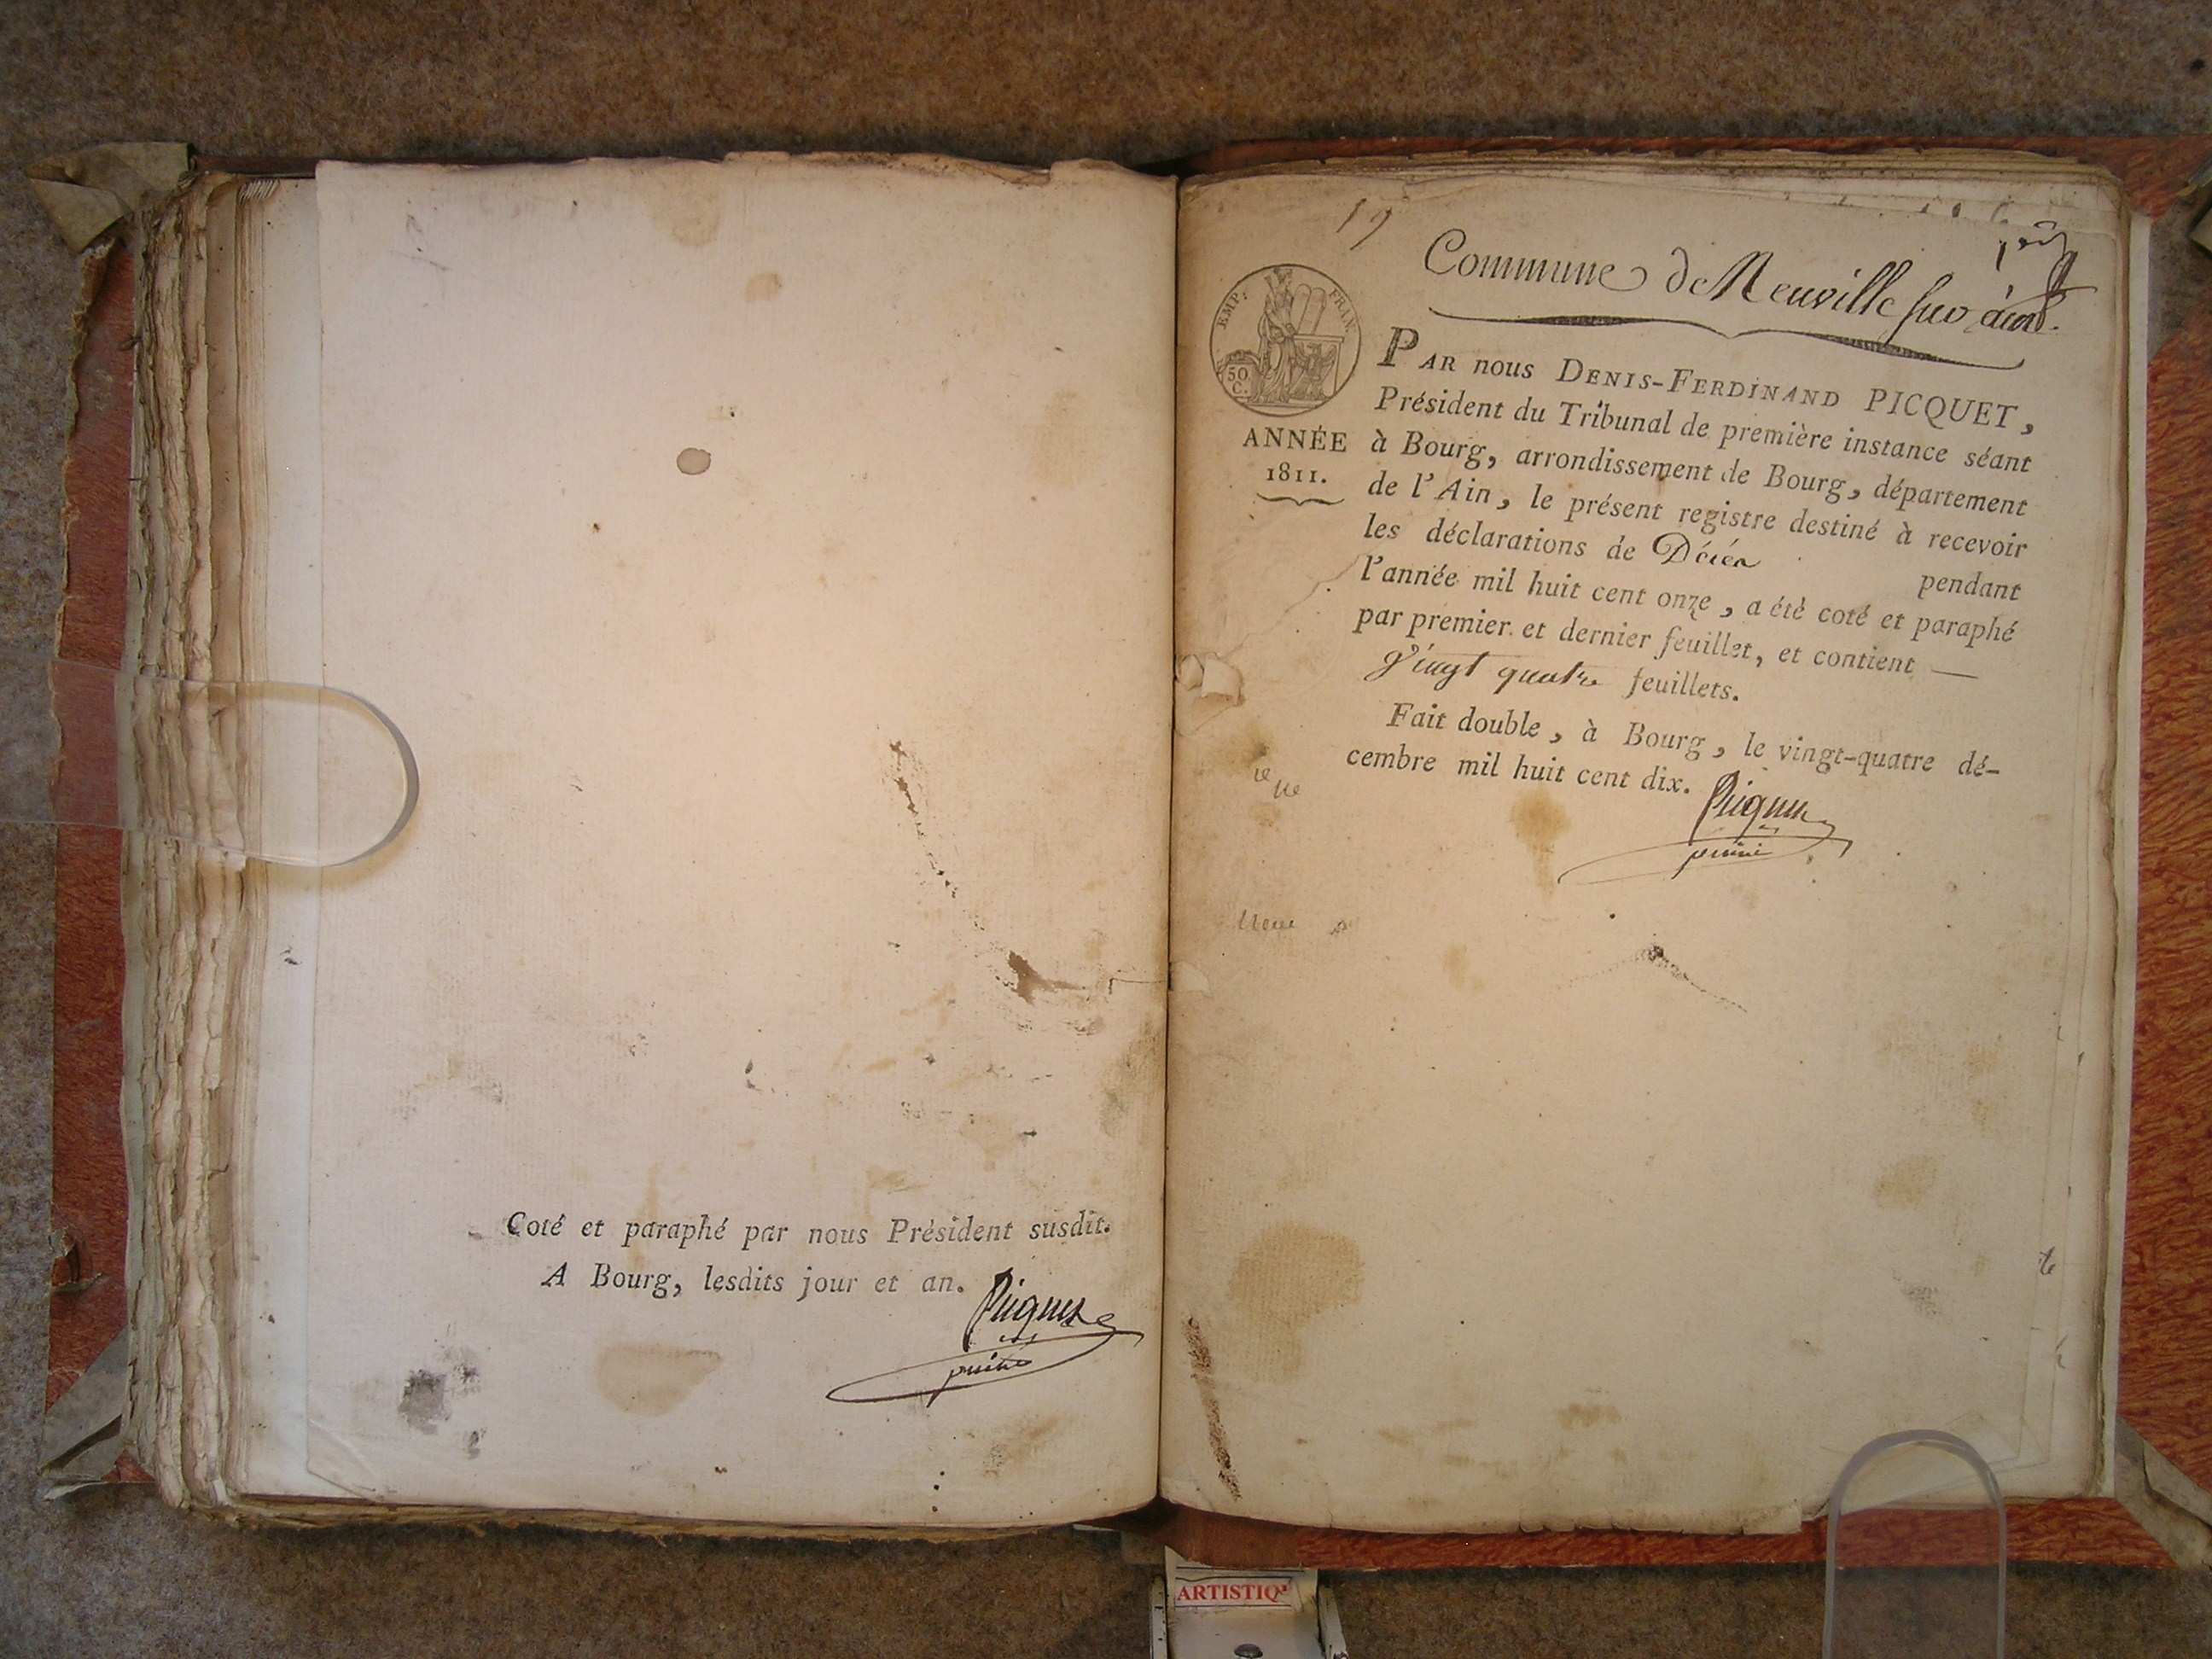 Coté et paraphé par nous Président susdit.
A Bourg, lesdits jour et an.
Picquet
puiné
19
1er
Commune de Neuville sur ain.
EMP. FRAN.
50
C.
ANNÉE
1811.
PAR nous DENIS-FERDINAND PICQUET,
Président du Tribunal de première instance séant
à Bourg, arrondissement de Bourg, département
de l'Ain, le présent registre destiné à recevoir
les déclarations de Décès pendant
l'année mil huit cent onze, a été coté et paraphé
par premier et dernier feuillet, et contient —
Vingt quatre feuillets.
Fait double, à Bourg, le vingt-quatre dé-
cembre mil huit cent dix.
Picquet
puiné
ARTISTIQ